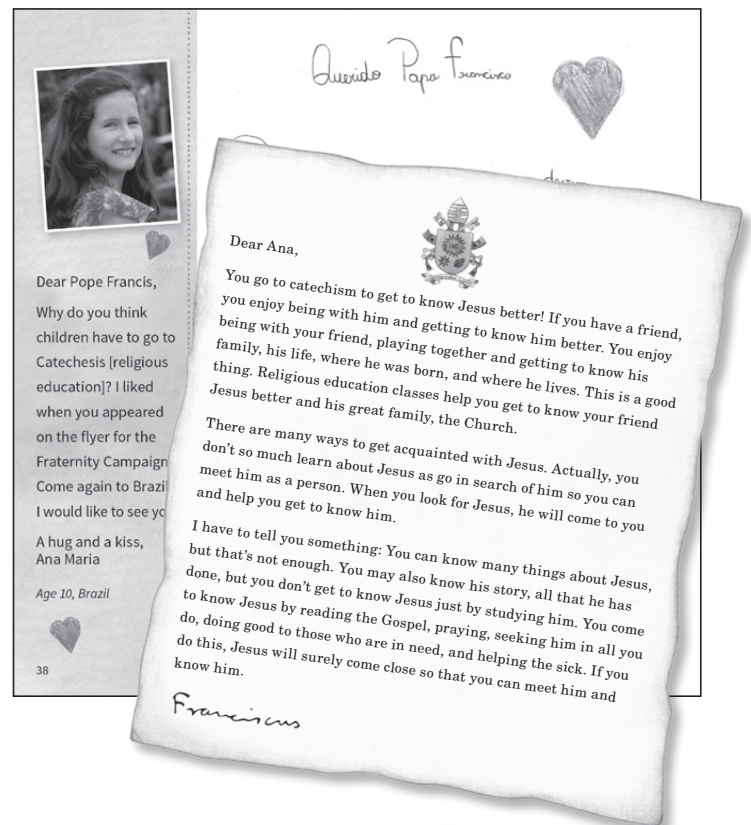 Querido Papa Francisco
Dear Pope Francis,
Why do you think
children have to go to
Catechesis [religious
education]? I liked
when you appeared
on the flyer for the
Fraternity Campaign
Come again to Brazil
I would like to see yo
A hug and a kiss,
Ana Maria
Age 10, Brazil
38
Dear Ana,
You go to catechism to get to know Jesus better! If you have a friend,
you enjoy being with him and getting to know him better. You enjoy
being with your friend, playing together and getting to know his
family, his life, where he was born, and where he lives. This is a good
thing. Religious education classes help you get to know your friend
Jesus better and his great family, the Church.
There are many ways to get acquainted with Jesus. Actually, you
don't so much learn about Jesus as go in search of him so you can
meet him as a person. When you look for Jesus, he will come to you
and help you get to know him.
I have to tell you something: You can know many things about Jesus,
but that's not enough. You may also know his story, all that he has
done, but you don't get to know Jesus just by studying him. You come
to know Jesus by reading the Gospel, praying, seeking him in all you
do, doing good to those who are in need, and helping the sick. If you
do this, Jesus will surely come close so that you can meet him and
know him.
Franciscus